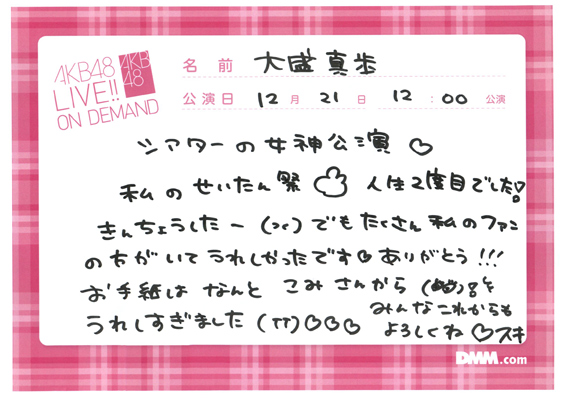 AKB48
LIVE!!
ON DEMAND
AKB
48
名前 大盛真歩
公演日 12月21日 12:00公演
シアターの女神公演♡
私のせいたん祭 人生2度目でした!
きんちょうしたー(><)でもたくさん私のファン
の方がいてうれしかったです♡ありがとう!!!
お手紙はなんと こみさんから
うれしすぎました(TT)♡♡♡
みんなこれからも
よろしくね♡スキ
DMM.com